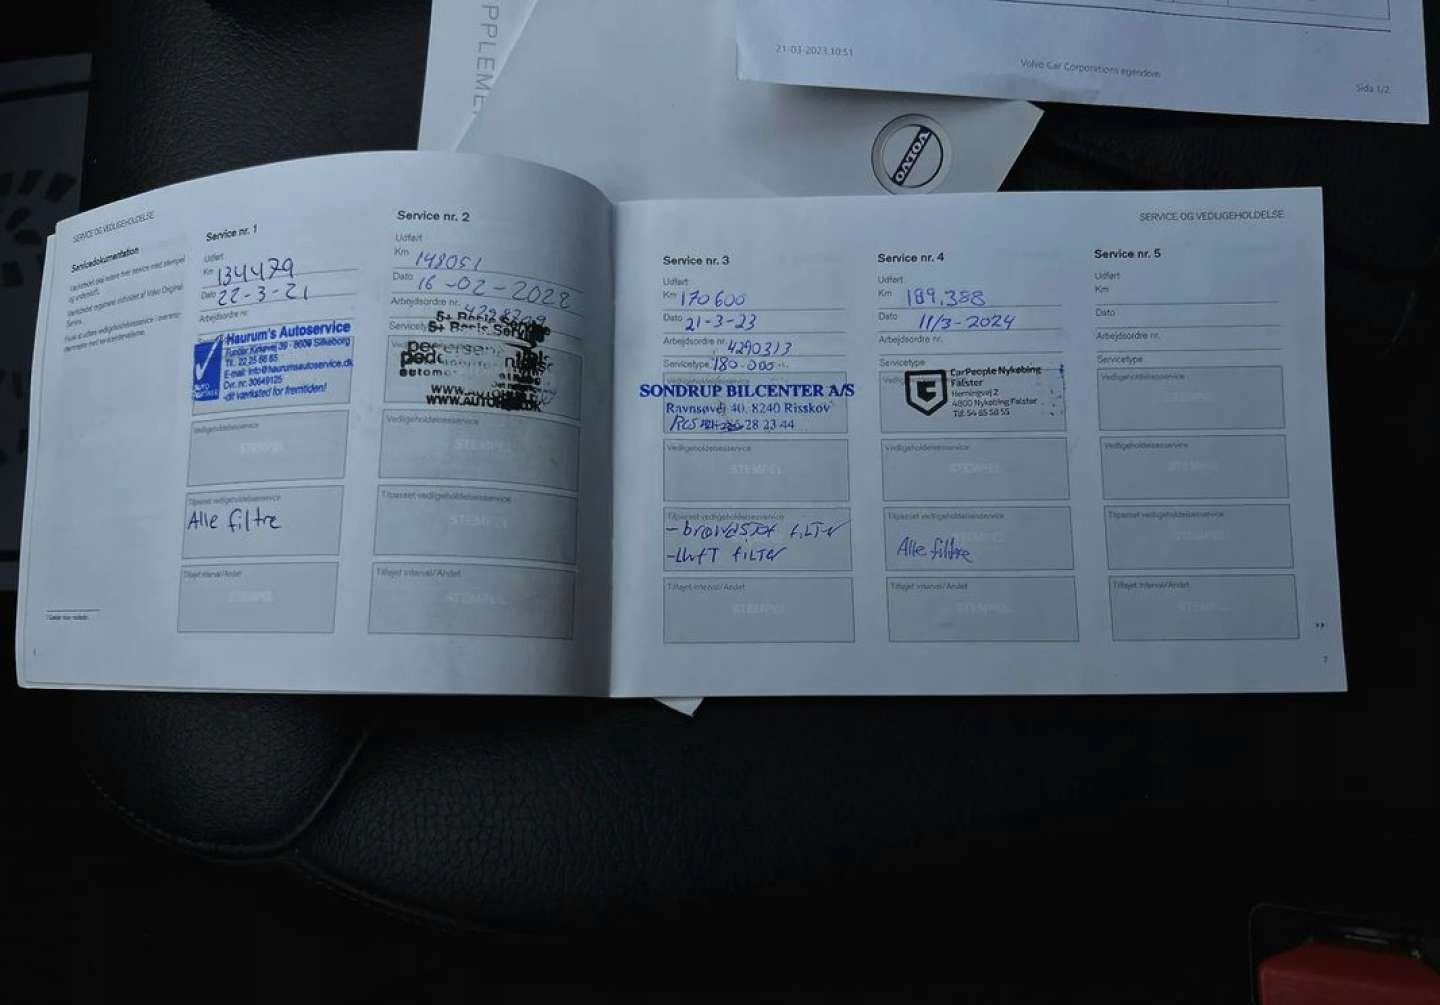 PPLEME
21-03-2023 10:51
Volvo Car Corporations egendom
Sida 1/2
VOLVO
SERVICE OG VEDLIGEHOLDELSE
Servicedokumentation
Service nr. 1
Udført
Km 134479
Dato 22-3-21
Arbejdsordre nr.
Haurum's Autoservice
Funder Kirkevej 39 - 8600 Silkeborg
Tlf.: 22 25 66 65
E-mail: info@haurumsautoservice.dk
Cvr. nr: 30649125
-dit værksted for fremtiden!
Vedligeholdelsesservice
STEMPEL
Tilpasset vedligeholdelsesservice
Alle filtre
Tilføjet interval/Andet
STEMPEL
Service nr. 2
Udført
Km 148051
Dato 16-02-2022
Arbejdsordre nr.
5+ Basis Service
Vedligeholdelsesservice
STEMPEL
Tilpasset vedligeholdelsesservice
STEMPEL
Tilføjet interval/Andet
STEMPEL
SERVICE OG VEDLIGEHOLDELSE
Service nr. 3
Udført
Km 170600
Dato 21-3-23
Arbejdsordre nr. 4290313
Servicetype 180.000
SONDRUP BILCENTER A/S
Ravnsøvej 40, 8240 Risskov
28 23 44
Vedligeholdelsesservice
STEMPEL
Tilpasset vedligeholdelsesservice
- brændstof filter
- Luft filter
Tilføjet interval/Andet
STEMPEL
Service nr. 4
Udført
Km 189.388
Dato 11/3-2024
Arbejdsordre nr.
Servicetype
CarPeople Nykøbing
Falster
Herningvej 2
4800 Nykøbing Falster
Tlf. 54 85 58 55
Vedligeholdelsesservice
STEMPEL
Tilpasset vedligeholdelsesservice
Alle filtre
Tilføjet interval/Andet
STEMPEL
Service nr. 5
Udført
Km
Dato
Arbejdsordre nr.
Servicetype
Vedligeholdelsesservice
STEMPEL
Vedligeholdelsesservice
STEMPEL
Tilpasset vedligeholdelsesservice
STEMPEL
Tilføjet interval/Andet
STEMPEL
7